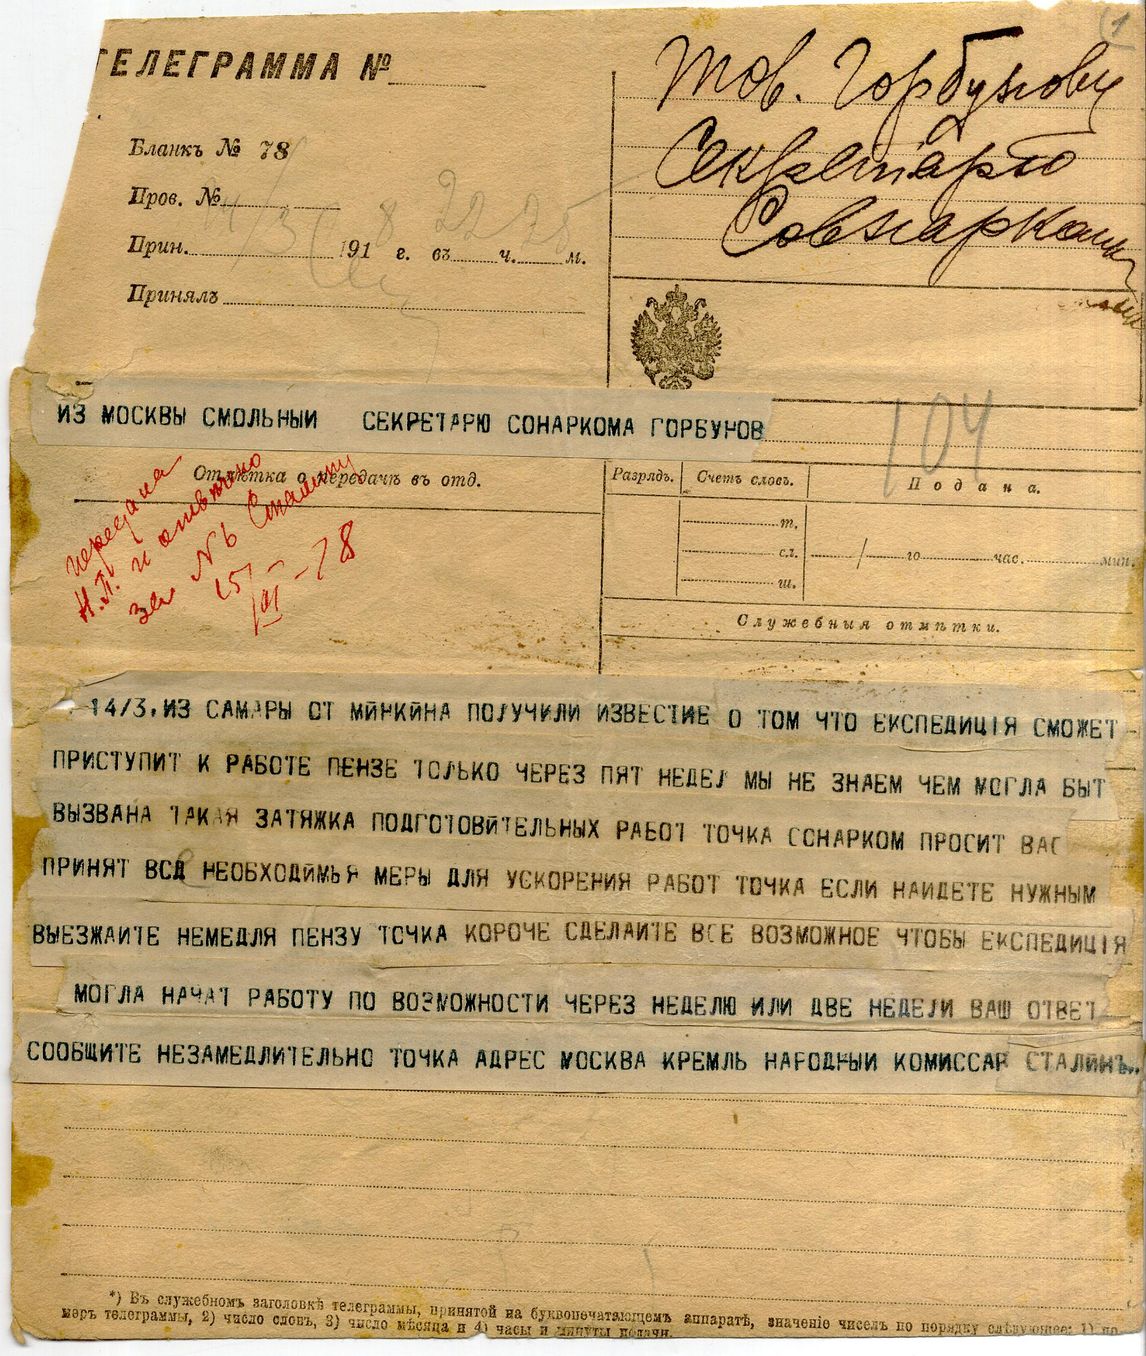 ТЕЛЕГРАММА №
Бланкъ № 78
Пров. №
Прин. 14/3 1918 г. въ 22 ч. 25 м.
Принялъ
Тов. Горбунову
Секретарю
Совнаркома
104
ИЗ МОСКВЫ СМОЛЬНЫИ СЕКРЕТАРЮ СОНАРКОМА ГОРБУНОВ
Отмѣтка о передачѣ въ отд.
передана
Н.П. и
за № 6 Сталину
15/III-18
Разрядъ.
Счетъ словъ.
Подана.
т.
сл.
ш.
го час. мин.
Служебныя отмѣтки.
14/3. ИЗ САМАРЫ ОТ МЙНКЙНА ПОЛУЧИЛИ ИЗВЕСТИЕ О ТОМ ЧТО ЕКСПЕДИЦІЯ СМОЖЕТ
ПРИСТУПИТ К РАБОТЕ ПЕНЗЕ ТОЛЬКО ЧЕРЕЗ ПЯТ НЕДЕЛ МЫ НЕ ЗНАЕМ ЧЕМ МОГЛА БЫТ
ВЫЗВАНА ТАКАЯ ЗАТЯЖКА ПОДГОТОВЙТЕЛЬНЫХ РАБОТ ТОЧКА СОНАРКОМ ПРОСИТ ВАС
ПРИНЯТ ВСЕ НЕОБХОДЙМЫЯ МЕРЫ ДЛЯ УСКОРЕНИЯ РАБОТ ТОЧКА ЕСЛИ НАИДЕТЕ НУЖНЫМ
ВЫЕЗЖАИТЕ НЕМЕДЛЯ ПЕНЗУ ТОЧКА КОРОЧЕ СДЕЛАИТЕ ВСЕ ВОЗМОЖНОЕ ЧТОБЫ ЕКСПЕДИЦІЯ
МОГЛА НАЧАТ РАБОТУ ПО ВОЗМОЖНОСТИ ЧЕРЕЗ НЕДЕЛЮ ИЛИ ДВЕ НЕДЕЛИ ВАШ ОТВЕТ
СООБЩИТЕ НЕЗАМЕДЛИТЕЛЬНО ТОЧКА АДРЕС МОСКВА КРЕМЛЬ НАРОДНЫИ КОМИССАР СТАЛИНЪ..
*) Въ служебномъ заголовкѣ телеграммы, принятой на буквопечатающемъ аппаратѣ, значеніе чиселъ по порядку слѣдующее: 1) но
меръ телеграммы, 2) число словъ, 3) число мѣсяца и 4) часы и минуты подачи.